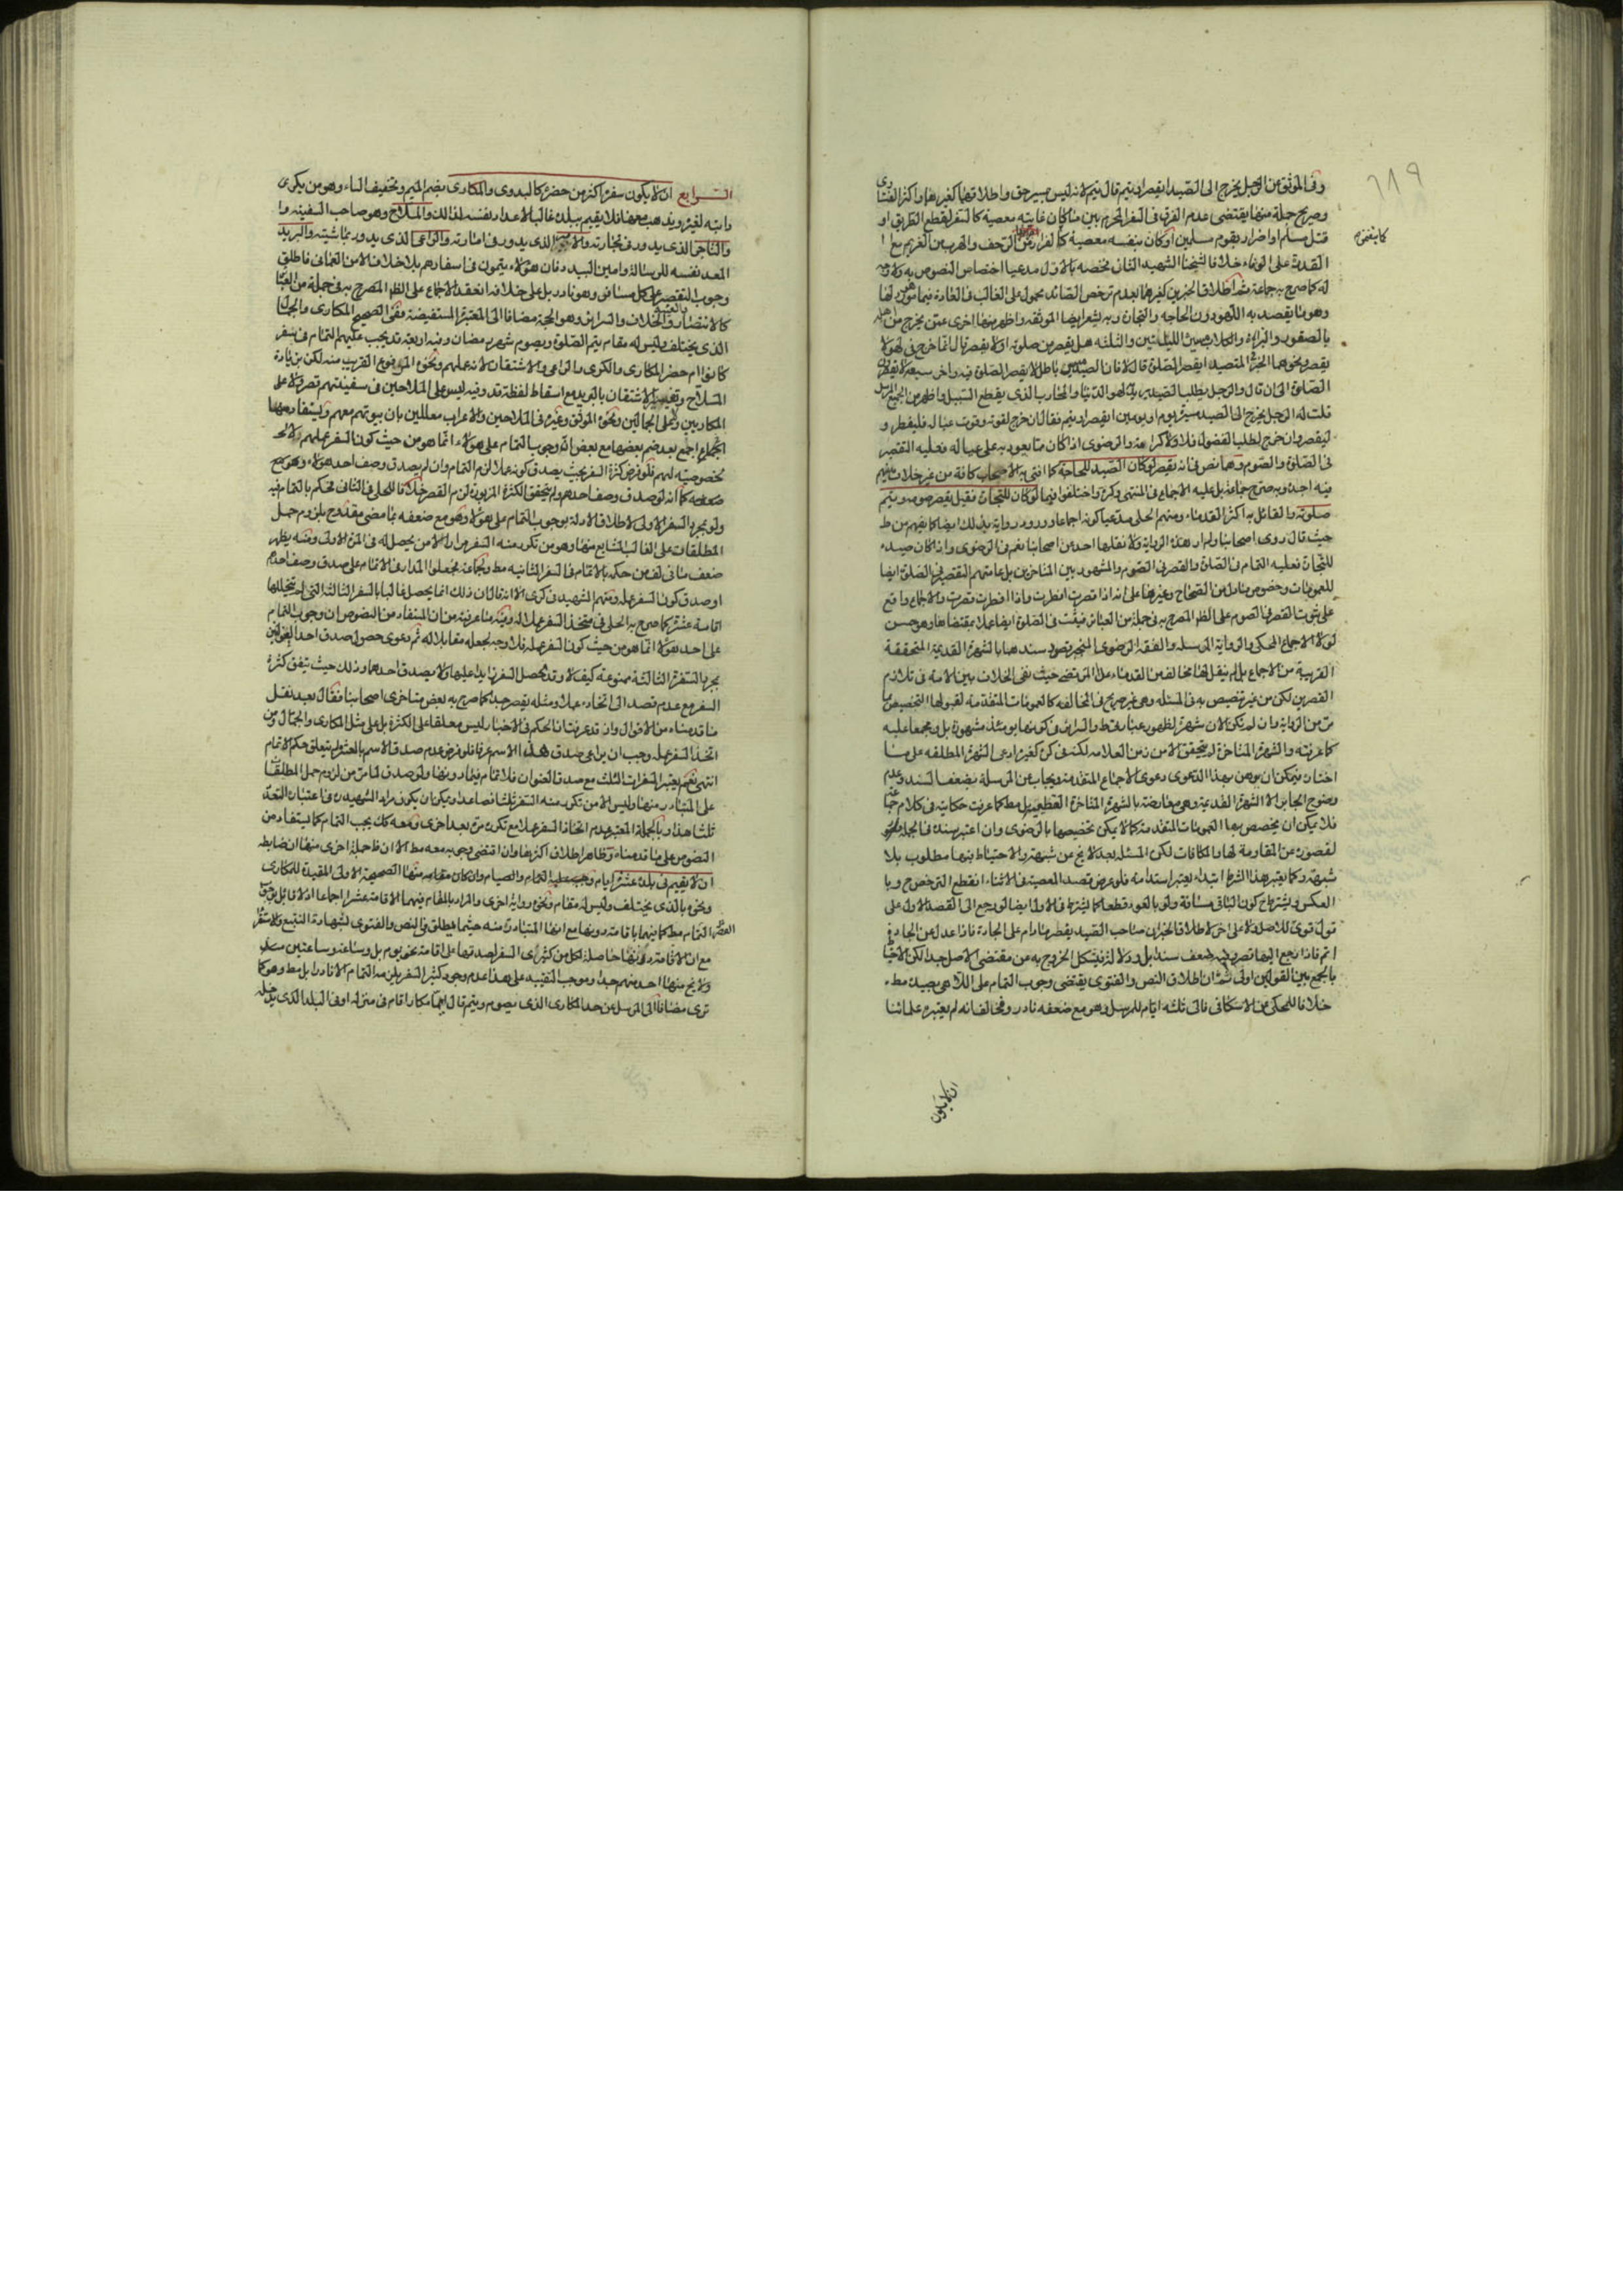 وفي الموثق عن الرجل يخرج الى الصيد ايقصر او يتم قال يتم لانه ليس بمسير حق واطلاقهما كغيرهما واكثر الفتاوى
وصريح جملة منها يقتضى عدم الفرق في السفر المحرم بين ما كان غايته معصية كالسفر لقطع الطريق او
قتل مسلم او اضرار بقوم مسلمين او كان بنفسه معصية كالفرار من الزحف والهرب من الغريم مع
القدرة على الوفاء خلافا لشيخنا الشهيد الثاني فخصه بالاول مدعيا اختصاص النصوص به
له كما صرح به جماعة ثم اطلاق الخبرين كغيرهما بعدم ترخص الصائد محمول على الغالب في العادة
وهو ما يقصد به اللهو دون الحاجة والتجارة وبه يشعر ايضا الموثقة واظهر منها اخرى عمن يخرج من اهله
بالصقور والبزاة والكلاب يتنزه الليلتين والثلثة هل يقصر من صلوته او لا يقصر قال انما خرج في لهو لا
يقصر ونحوهما الخبر المتصيد ايقصر الصلوة قال لا فان التصيد مسير باطل لا يقصر الصلوة فيه واخر سبعة لا يقصرون
الصلوة الى ان قال والرجل يطلب الصيد يريد به لهو الدنيا والمحارب الذى يقطع السبيل واظهر من الجميع المرسل
قلت له الرجل يخرج الى الصيد مسيرة يوم او يومين ايقصر او يتم فقال ان خرج لقوته وقوت عياله فليفطر و
ليقصر وان خرج لطلب الفضول فلا ولا كرامة والرضوى اذا كان مما يعود به على عياله فعليه التقصير
في الصلوة والصوم وهما نص في انه يقصر لو كان الصيد للحاجة كما افتى به الاصحاب كافة من غير خلاف
فيه اجده وبه صرح جماعة بل عليه الاجماع في المنتهى وكره واختلفوا فيما لو كان للتجارة فقيل يقصر صومه ويتم
صلوته والقائل به اكثر القدماء ومنهم الحلى مدعيا كونه اجماعا وورود رواية بذلك ايضا كما يفهم من ط
حيث قال روى اصحابنا ولم ار هذه الرواية ولا نقلها احد من اصحابنا نعم في الرضوى واذا كان صيده
للتجارة فعليه التمام في الصلوة والقصر في الصوم والمشهور بين المتاخرين بل عامتهم التقصير في الصلوة ايضا
للعمومات وخصوص ما دل من الصحاح وغيرها على انه اذا قصرت افطرت واذا افطرت قصرت والاجماع واقع
على ثبوت القصر في الصوم على الظ المصرح به في جملة من العبائر فيثبت في الصلوة ايضا عملا بمقتضاها وهو حسن
لولا الاجماع المحكى والرواية المرسلة والفقه الرضوى المنجبر قصور سندهما بالشهرة القديمة المتحققة
القريبة من الاجماع بل لم ينقل لها مخالف من القدماء عدا المرتضى حيث نفى الخلاف بين الامة في تلازم
القصرين لكن من غير تنصيص به في المسئلة وهى غير صريح في المخالفة كالعمومات المتقدمة لقبولها التخصيص بما
مر من الرواية وان لم تكن الان شهرة لظهور عبارة ط والسرائر في كونها يومئذ مشهورة بل ومجمعا عليه
كما عرفته والشهرة المتاخرة لم يتحقق الا من زمن العلامة لكنه في كره كغيره ادعى الشهرة المطلقة على ما
اختاره فيمكن ان يوهن بهذا الدعوى دعوى الاجماع المتقدمة ويجاب عن المرسلة بضعف السند وعدم
وضوح الجابر الا الشهرة القديمة وهى معارضة بالشهرة المتاخرة القطعية بل مط كما عرفت حكايته في كلام جماعة
فلا يمكن ان يخصص بها العمومات المتقدمة كما لا يمكن تخصيصها بالرضوى وان اعتبر سنده في الجملة
لقصوره عن المقاومة لها والمكافات لكن المسئلة بعد لا يخ عن شبهة والاحتياط فيها مطلوب بلا
شبهة وكما يعتبر هذا الشرط ابتداء يعتبر استدامة فلو عرض قصد المعصية في الاثناء انقطع الترخص وبا
العكس ويشترط ح كون الباقي مسافة ولو بالعود قطعا كما يشترط في الاول ايضا لو رجع الى القصد الاول على
قول قوى للاصل ولا على اخر لاطلاق الخبر ان صاحب الصيد يقصر ما دام على الجادة فاذا عدل عن الجادة
اتم فاذا رجع اليها قصر وفيه ضعف سندا بل ودلالة فيشكل الخروج به عن مقتضى الاصل جدا لكن الاحتياط
بالجمع بين القولين اولى ثم ان اطلاق النص والفتوى يقتضى وجوب التمام على اللاهى بصيده مط
خلافا للمحكى عن الاسكافي فالى ثلثة ايام للمرسل وهو مع ضعفه نادر ومخالفا له لم يعتبره علمائنا
ان لا يكون
الرابع ان لا يكون سفره اكثر من حضره كالبدوى والمكارى بضم الميم وتخفيف الياء وهو من يكرى
دابته لغيره ويذهب معها فلا يقيم ببلده غالبا لاعداده نفسه لذالك والملاح وهو صاحب السفينة وا
والتاجر الذى يدور في تجارته والامير الذى يدور في امارته والراعى الذى يدور بماشيته والبريد
المعد نفسه للرسالة وامين البيدر فان هؤلاء يتمون في اسفارهم بلا خلاف الا من العماني فاطلق
وجوب التقصير على كل مسافر وهو نادر بل على خلافه انعقد الاجماع على الظ المصرح به في جملة من العبائر
كالانتصار والخلاف والسرائر وهو الحجة مضافا الى المعتبرة المستفيضة ففى الصحيح المكارى والجمال
الذى يختلف وليس له مقام يتم الصلوة ويصوم شهر رمضان وفيه اربعة قد يجب عليهم التمام في سفر
كانوا ام حضر المكارى والكرى والراعى والاشتقان لانه عملهم ونحوه المرفوع القريب منه لكن بزيادة
الملاح وتفسير الاشتقان بالبريد مع اسقاط لفظة قد وفيه ليس على الملاحين في سفينتهم تقصير ولا على
المكاريين ولا على الجمالين ونحوه الموثق وغيره في الملاحين والاعراب معللين بان بيوتهم معهم ويستفاد منها
اجمع بعد ضم بعضها مع بعض ان وجوب التمام على هؤلاء انما هو من حيث كون السفر عملهم لا
لخصوصية لهم فلو فرض كثرة السفر بحيث يصدق كونه عملا لزم التمام وان لم يصدق وصف احد هؤلاء
كما انه لو صدق وصف احدهم ولم يتحقق الكثرة المزبورة لزم القصر خلافا للحلى في الثاني فحكم بالتمام فيه
ولو بمجرد السفرة الاولى لاطلاق الادلة بوجوب التمام على هؤلاء وهو مع ضعفه بما مضى مقدوح بلزوم حمل
المطلقات على الغالب الشايع منها وهو من تكرر منه السفر مرارا لا من يحصل له في المرة الاولى ومنه يظهر
ضعف ما في لف من حكمه بالاتمام في السفرة الثانية مط وجماعة فجعلوا المدار في الاتمام على صدق وصف احدهم
او صدق كون السفر عمله ومنهم الشهيد في كرى الا انه قال ان ذلك انما يحصل غالبا بالسفرة الثالثة التى لم يتخللها
اقامة عشرة كما صرح به الحلى في متخذ السفر عملا له وفيه ما عرفته من ان المستفاد من النصوص ان وجوب التمام
على احد هؤلاء انما هو من حيث كون السفر عمله فلا وجه لجعله مقابلا له ثم دعوى حصول صدق احد العنوانين
بمجرد السفرة الثالثة ممنوعة كيف لا وقد يحصل السفر زايدا عليها ولا يصدق احدهما وذلك حيث يتفق كثرة
السفر مع عدم قصد الى اتخاذه عملا ومثله يقصر جدا كما صرح به بعض متاخرى اصحابنا فقال بعد نقل
ما قدمناه من الاقوال وانت قد عرفت ان الحكم في الاخبار ليس معلقا على الكثرة بل على مثل المكارى والجمال ومن
اتخذ السفر عمله وجب ان يراعى صدق هذا الاسم عرفا فلو فرض عدم صدق الاسم بالعشر لم يتعلق حكم الاتمام
انتهى نعم يعتبر السفرات الثلث مع صدق العنوان فلا تمام فيما دونها ولو صدق لما مر من لزوم حمل المطلقات
على المتبادر منها وليس الا من تكرر منه السفر ثلثا فصاعدا ويمكن ان يكون مراد الشهيد ره في اعتبار التعدد
ثلثا هذا وبالجملة المعتبر عدم اتخاذ السفر عملا مع تكرره مرة بعد اخرى ومعه كك يجب التمام كما يستفاد من
النصوص على ما قدمناه وظاهر اطلاق اكثرها وان اقتضى وجوبه معه مط الا ان ظ جملة اخرى منها ان ضابطه
ان لا يقيم في بلده عشرة ايام وجب عليه التمام والصيام وان كان مقامه منها الصحيحة الاولى المقيدة للمكارى
ونحوه بالذى يختلف وليس له مقام ونحوه رواية اخرى والمراد بالمقام فيهما الاقامة عشرا اجماعا اذ لا قائل
التمام مط كما فيهما باقامة دونها مع انها المتبادرة منه حيثما يطلق في النص والفتوى لشهادة التتبع والاستقراء
مع ان الاقامة دونها حاصلة لكل من كثيرى السفر لصدقها على اقامة نحو يوم بل وساعة وساعتين
ولا يخ منها احد منهم جدا وموجب التقييد على هذا عدم وجود كثير السفر يلزمه التمام الا نادرا بل مط وهو كما
ترى مضافا الى المرسل عن حد المكارى الذى يصوم ويتم قال ايما مكار اقام في منزله او في البلد الذى يدخله